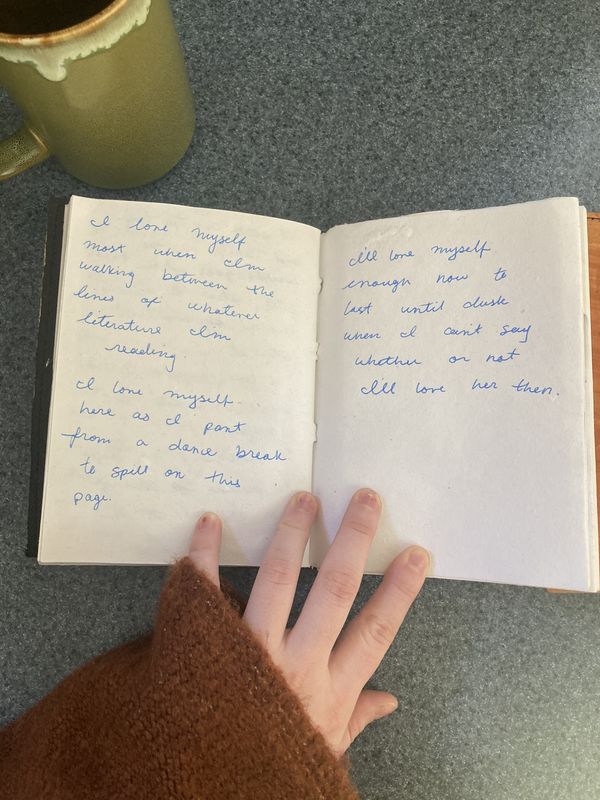 I love myself
most when I'm
walking between the
lines of whatever
literature I'm
reading.
I love myself
here as I pant
from a dance break
to spill on this
page.
I'll love myself
enough now to
last until dusk
when I can't say
whether or not
I'll love her then.